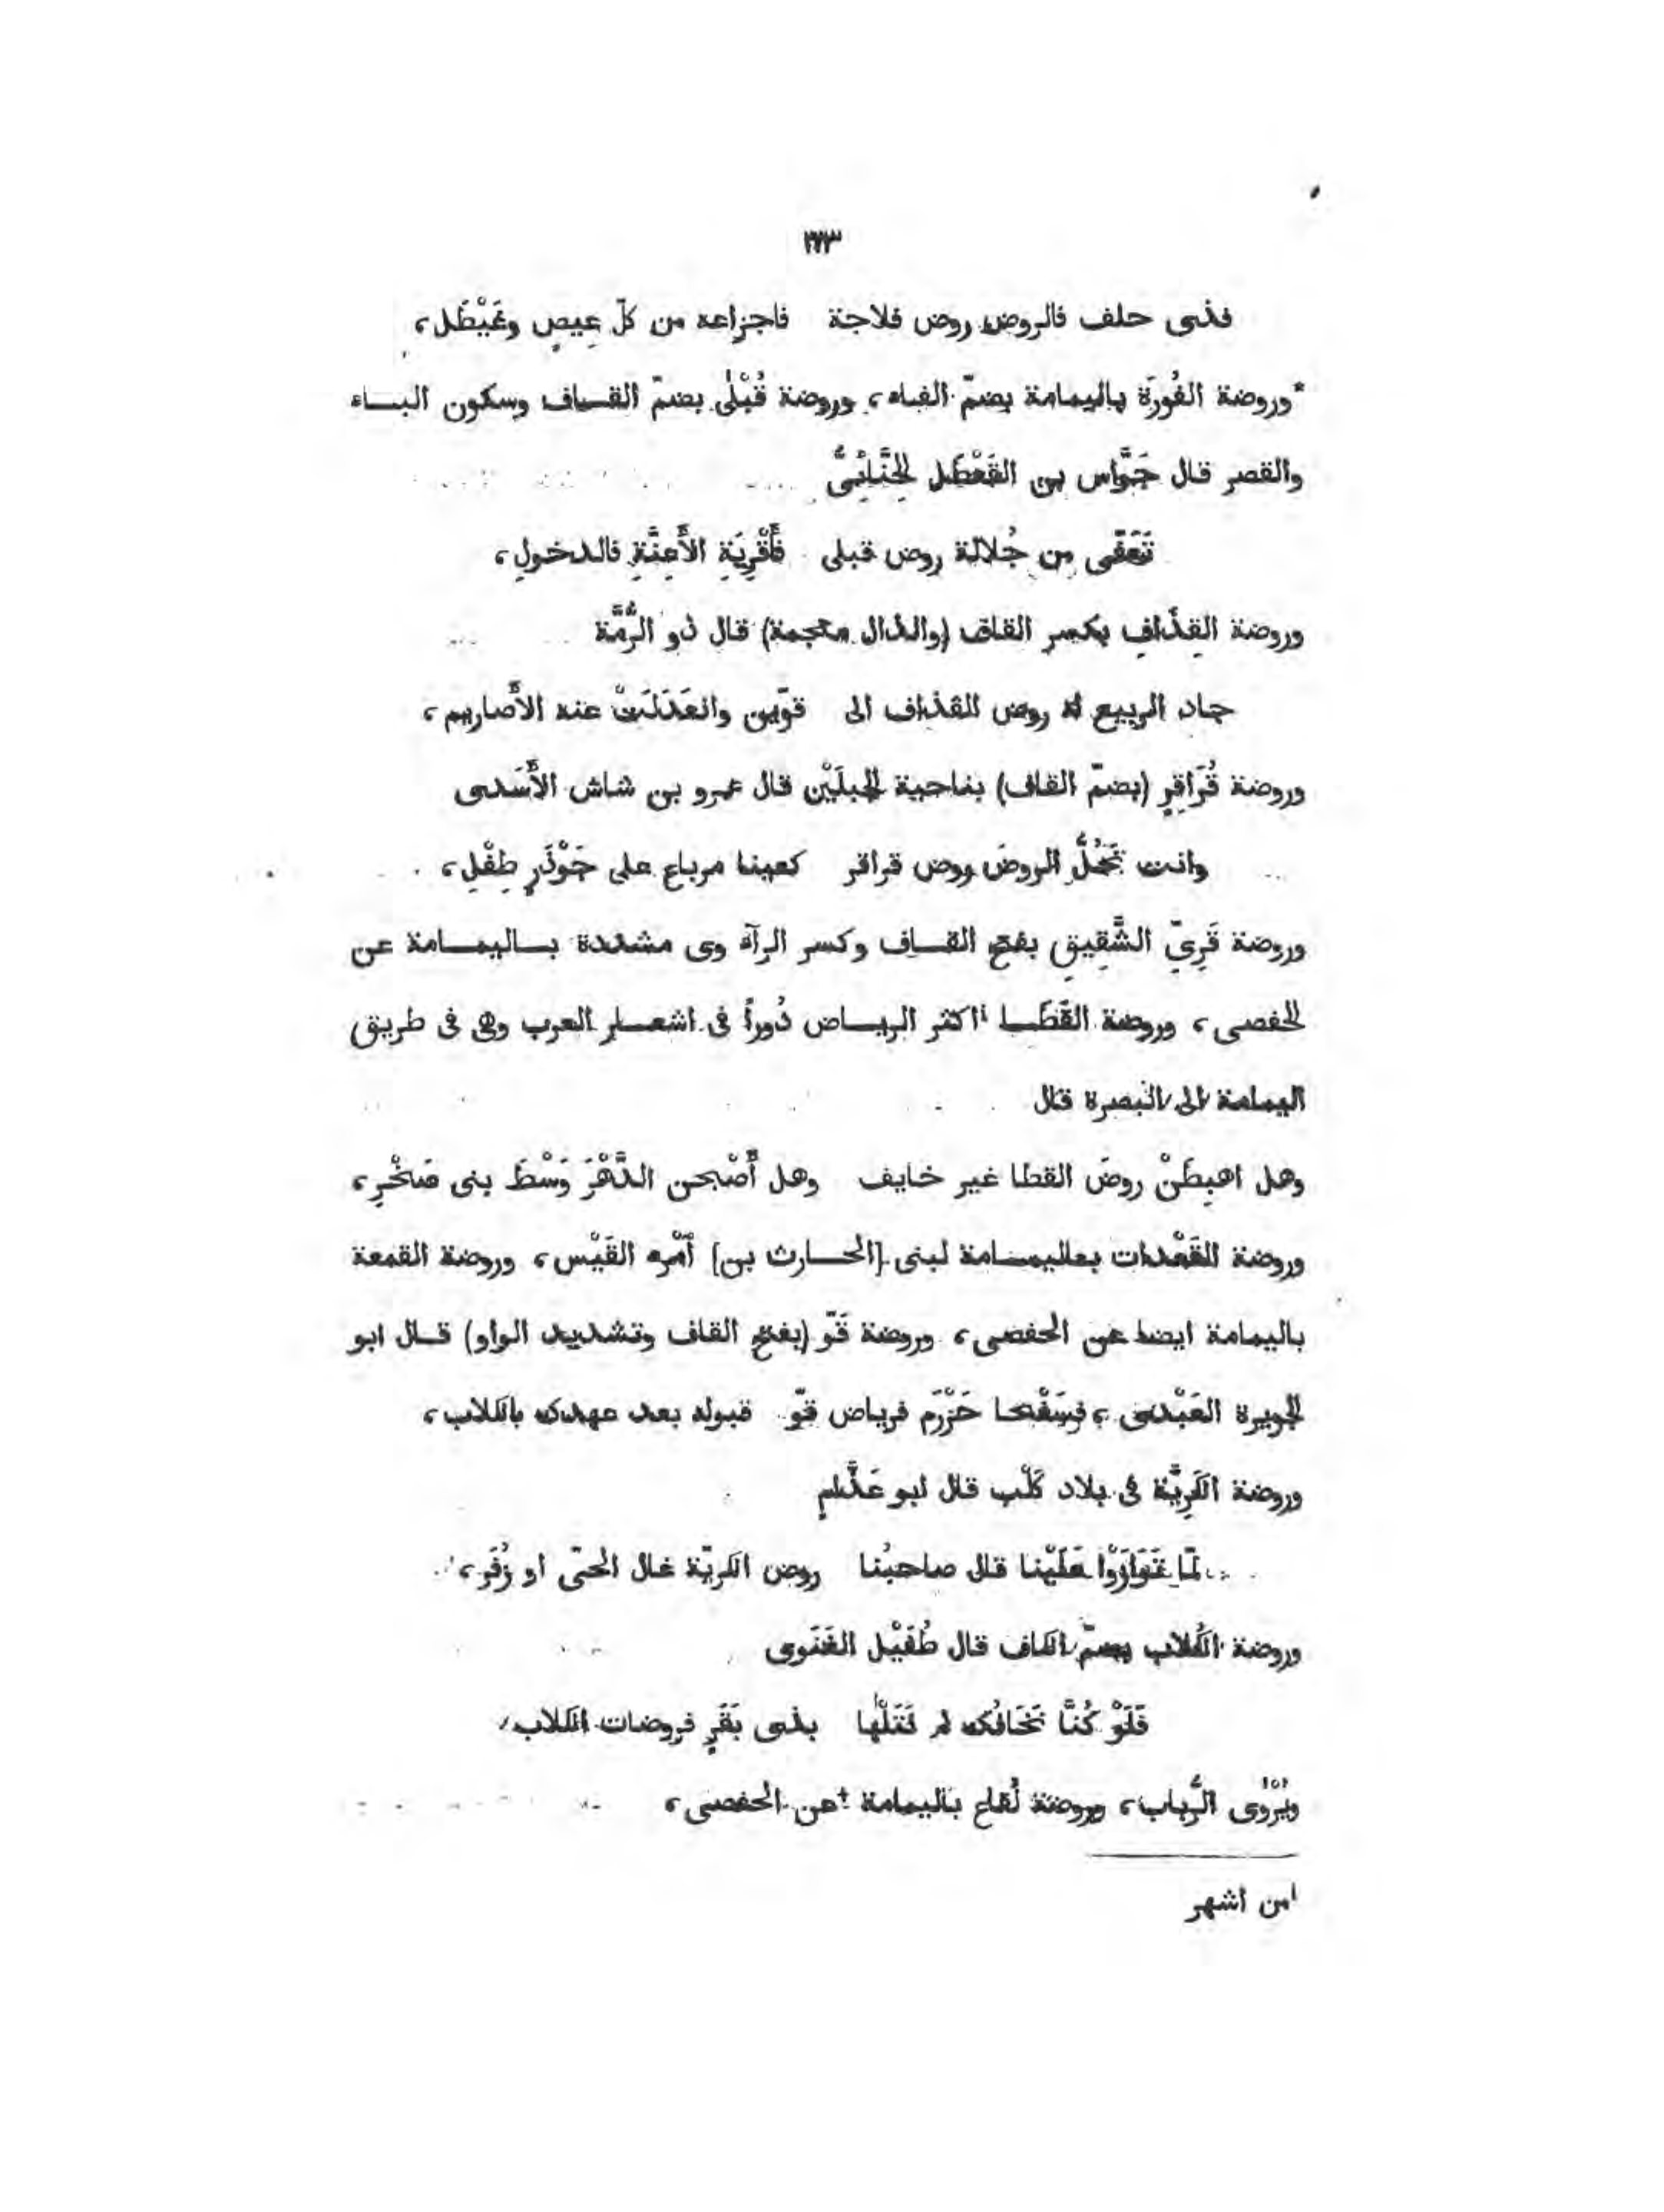 ٢١٣
فذى حلف فالروض روض فلاجة فاجزاعه من كلّ عِيصٍ وغَيْطَل،
*وروضة الفُورَة باليمامة بضمّ الفاء، وروضة قُبْلٰى بضمّ القاف وسكون الباء
والقصر قال جَوَّاس بن القَعْطَل الحِنَّائِىُّ
تَعَفّى من جُلالة روض قبلى فَأَقْرِيَةِ الأَعِنَّةِ فالدخولِ،
وروضة القِذَافِ بكسر القاف (والذال معجمة) قال ذو الرُّمَّة
جاد الربيع له روض القذاف الى قوّين وانعَدَلَتْ عنه الأَصاريم،
وروضة قُرَاقِرٍ (بضمّ القاف) بناحية الجبلَيْن قال عمرو بن شاش الأَسَدى
وانت تَحُلُّ الروضَ روض قراقر كعينا مرباع على جَوْذَرٍ طِفْلِ،
وروضة قَرِىّ الشَّقِيقِ بفتح القاف وكسر الرآه وى مشددة باليمامة عن
الحفصى، وروضة القَطَا ¹اكثر الرياض دُوراً فى اشعار العرب وهى فى طريق
اليمامة الى البصرة قال
وهل اهبِطَنْ روضَ القطا غير خايف وهل أَصْبحن الدَّهْرَ وَسْطَ بنى صَخْرِ،
وروضة القَعْدات باليمامة لبنى [الحارث بن] أمْره القَيْس، وروضة القمعة
باليمامة ايضا عن الحفصى، وروضة قَوّ (بفتح القاف وتشديد الواو) قال ابو
الجويرة العَبْدى، فسَفْحا حَزْرَم فرياض قوّ قبوله بعد عهدك بالكلاب،
وروضة الكَرِيَّة فى بلاد كَلْب قال ابو عَذَّامٍ
لمّا تَوَارَوْا عَلَيْنا قال صاحبُنا روض الكريّة غال الحىّ او زُفَر،
وروضة الكُلاب بضمّ الكاف قال طُفَيْل الغَنَوى
فَلَوْ كُنَّا نَخَافُكه لم نَنَلْها بذى بَقَرٍ فروضات الكلاب،
ويُرْوى الرُّباب، وروضة لُقاع باليمامة †عن الحفصى،
¹من اشهر